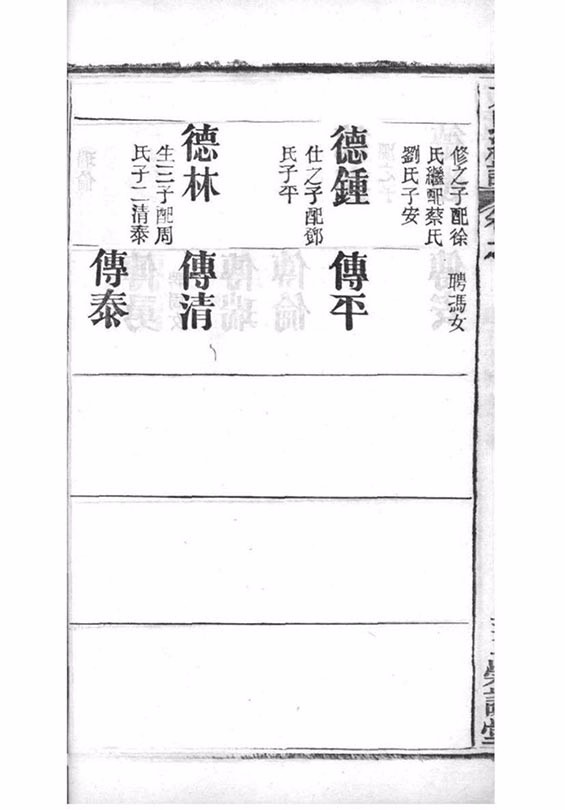 修之子配徐
氏繼配蔡氏
劉氏子安
德鍾
仕之子配鄧
氏子平
德林
生三子配周
氏子二清泰
聘馮女
傳平
傳清
傳泰